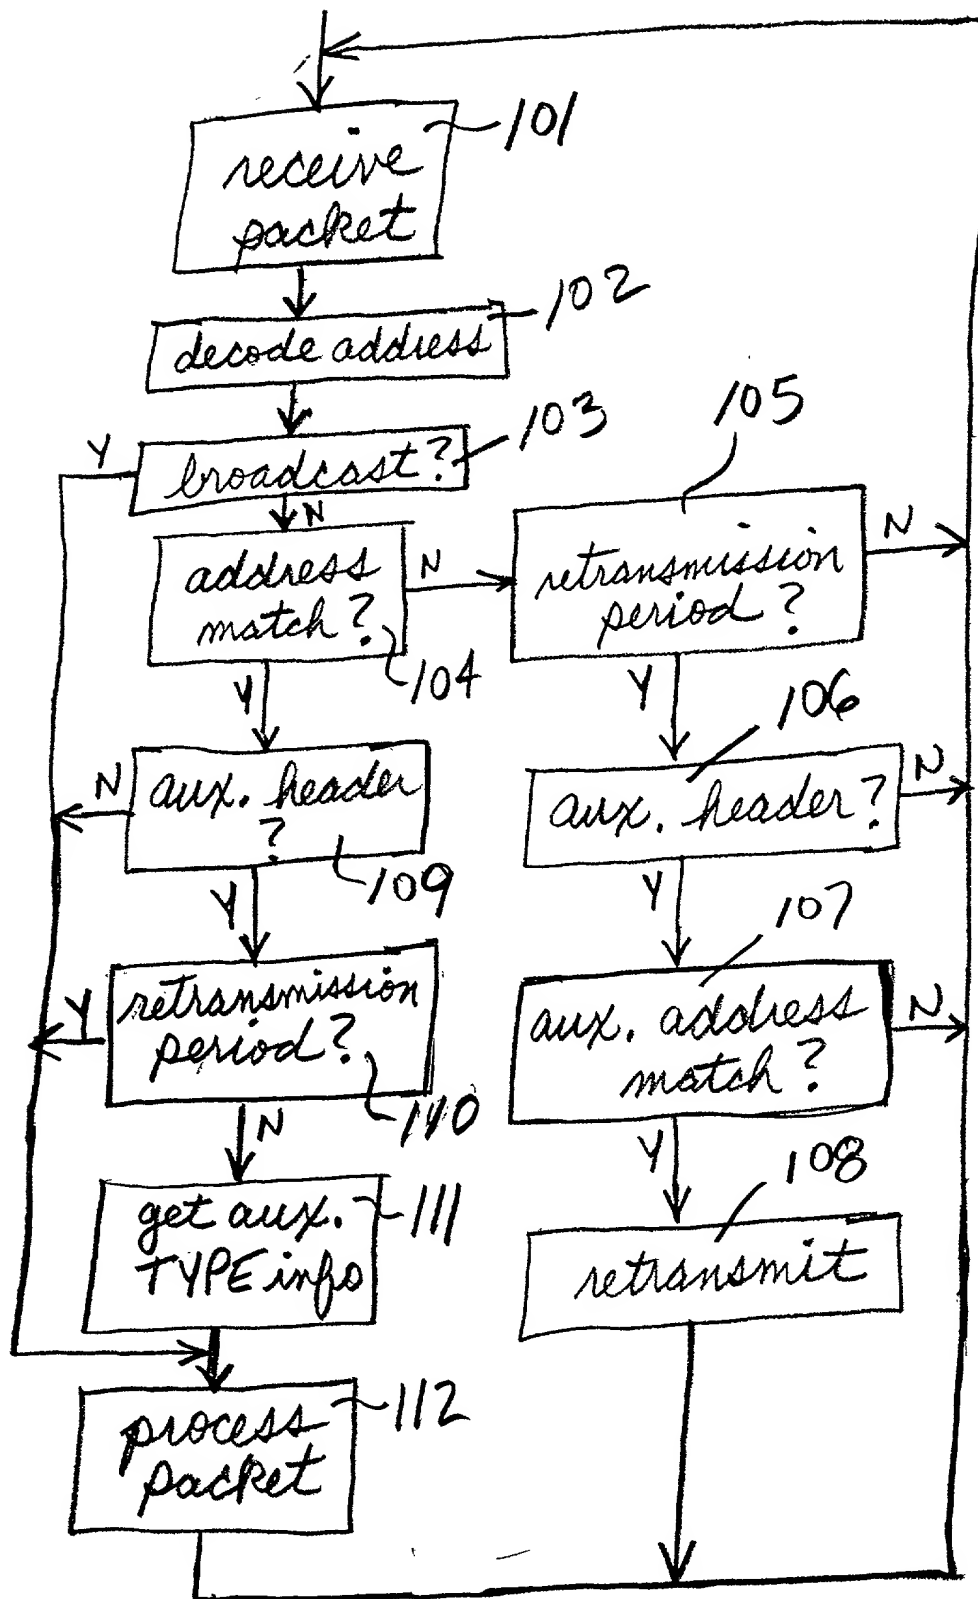 101
receive
packet
102
decode address
103
Y
broadcast?
N
105
address
match?
N
104
retransmission
period?
N
Y
Y
106
aux. header
?
N
109
aux. header?
N
Y
Y
107
retransmission
period?
Y
110
aux. address
match?
N
N
Y
108
get aux.
TYPE info
111
retransmit
process
packet
112